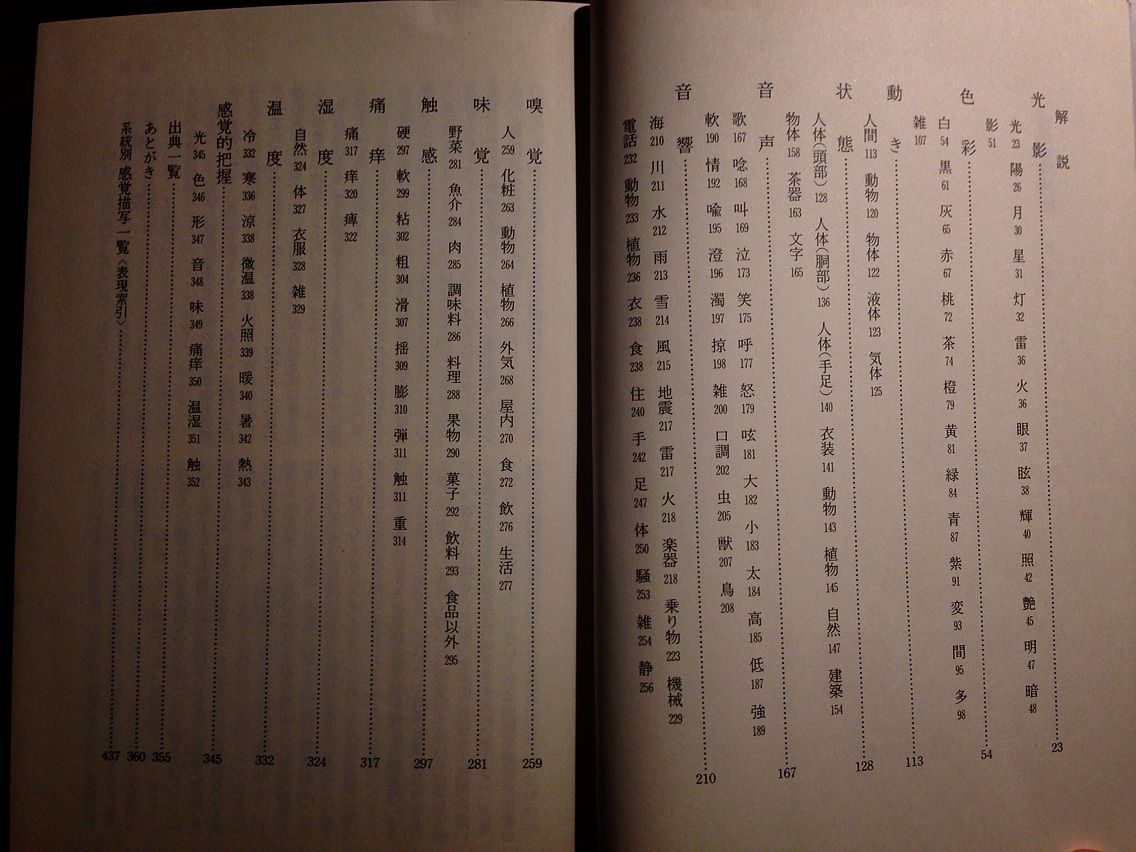 解説
光影……23
光23 陽26 月30 星31 灯32 雷36 火36 眼37 眩38 輝40 照42 艶45 明47 暗48
影51
色彩……54
白54 黒61 灰65 赤67 桃72 茶74 橙79 黄81 緑84 青87 紫91 変93 間95 多98
雑107
動き……113
人間113 動物120 物体122 液体123 気体125
状態……128
人体(頭部)128 人体(胴部)136 人体(手足)140 衣装141 動物143 植物145 自然147 建築154
物体158 茶器163 文字165
音声……167
歌167 唸168 叫169 泣173 笑175 呼177 怒179 呟181 大182 小183 太184 高185 低187 強189
軟190 情192 喩195 澄196 濁197 掠198 雑200 口調202 虫205 獣207 鳥208
音響……210
海210 川211 水212 雨213 雪214 風215 地震217 雷217 火218 楽器218 乗り物223 機械229
電話232 動物233 植物236 衣238 食238 住240 手242 足247 体250 騒253 雑254 静256
嗅覚……259
人259 化粧263 動物264 植物266 外気268 屋内270 食272 飲276 生活277
味覚……281
野菜281 魚介284 肉285 調味料286 料理288 果物290 菓子292 飲料293 食品以外295
触感……297
硬297 軟299 粘302 粗304 滑307 揺309 膨310 弾311 触311 重314
痛痒……317
痛317 痒320 痺322
湿度……324
自然324 体327 衣服328 雑329
温度……332
冷332 寒336 涼338 微温338 火照339 暖340 暑342 熱343
感覚的把握……345
光345 色346 形347 音348 味349 痛痒350 温湿351 触352
出典一覧……355
あとがき……360
系統別 感覚描写一覧〈表現索引〉……437